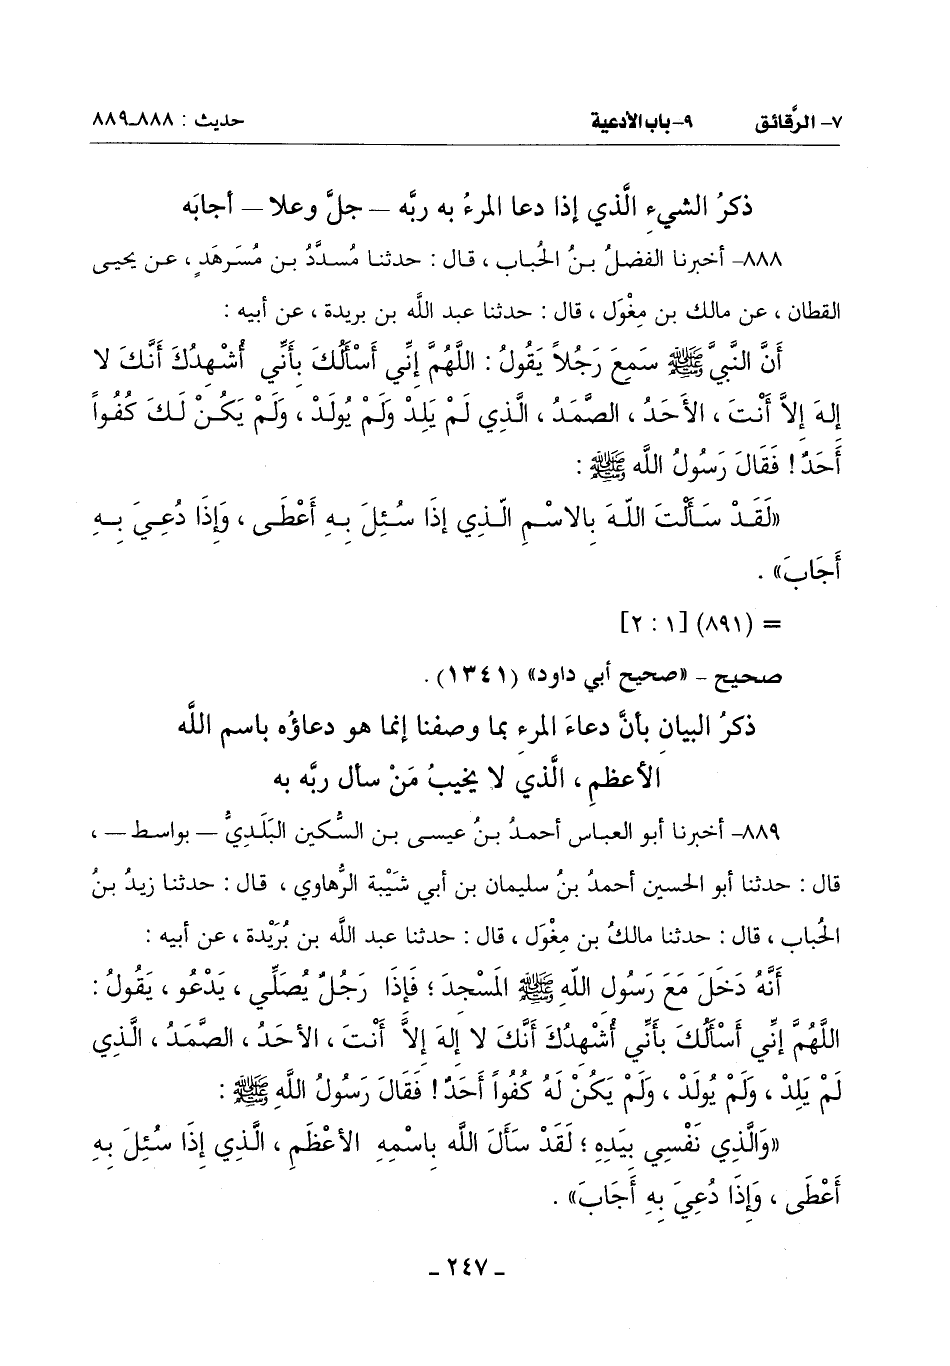 ٧- الرَّقائق ٩-باب الأدعية حديث : ٨٨٨-٨٨٩
ذكرُ الشيءِ الَّذي إذا دعا المرءُ به ربَّه – جلَّ وعلا – أجابَه
٨٨٨- أخبرنا الفضلُ بنُ الحُباب ، قال : حدثنا مُسدَّدُ بن مُسَرهَدٍ ، عن يحيى
القطان ، عن مالك بن مِغْوَل ، قال : حدثنا عبد اللَّه بن بريدة ، عن أبيه :
أَنَّ النَّبيَّ ﷺ سَمِعَ رَجُلاً يَقُولُ : اللَّهُمَّ إِنِّي أَسْأَلُكَ بِأَنِّي أُشْهِدُكَ أَنَّكَ لا
إلهَ إلاَّ أَنْتَ ، الأَحَدُ ، الصَّمَدُ ، الَّذي لَمْ يَلِدْ وَلَمْ يُولَدْ ، وَلَمْ يَكُنْ لَكَ كُفُواً
أَحَدٌ ! فَقَالَ رَسُولُ اللَّه ﷺ :
«لَقَدْ سَأَلْتَ اللَّهَ بِالاسْمِ الَّذِي إذَا سُئِلَ بِهِ أَعْطَى ، وَإِذَا دُعِيَ بِهِ
أَجَابَ» .
= (٨٩١) [١ : ٢]
صحيح - «صحيح أبي داود» (١٣٤١) .
ذكرُ البيان بأنَّ دعاءَ المرءِ بما وصفنا إنما هو دعاؤه باسمِ اللَّه
الأعظمِ ، الَّذي لا يخيبُ مَنْ سأل ربَّه به
٨٨٩- أخبرنا أبو العباس أحمدُ بنُ عيسى بن السُّكين البَلَديُّ – بواسط – ،
قال : حدثنا أبو الحسين أحمدُ بنُ سليمان بن أبي شَيْبة الرُّهاوي ، قال : حدثنا زيدُ بنُ
الحُباب ، قال : حدثنا مالكُ بن مِغْوَل ، قال : حدثنا عبد اللَّه بن بُرَيْدة ، عن أبيه :
أَنَّهُ دَخَلَ مَعَ رَسُولِ اللَّهِ ﷺ المَسْجِدَ ؛ فَإِذَا رَجُلٌ يُصَلِّي ، يَدْعُو ، يَقُولُ :
اللَّهُمَّ إِنِّي أَسْأَلُكَ بِأَنِّي أُشْهِدُكَ أَنَّكَ لا إلهَ إلاَّ أَنْتَ ، الأحَدُ ، الصَّمَدُ ، الَّذي
لَمْ يَلِدْ ، وَلَمْ يُولَدْ ، وَلَمْ يَكُنْ لَهُ كُفُواً أَحَدٌ ! فَقَالَ رَسُولُ اللَّهِ ﷺ :
«وَالَّذي نَفْسِي بِيَدِهِ ؛ لَقَدْ سَأَلَ اللَّه بِاسْمِهِ الأَعْظَمِ ، الَّذِي إِذَا سُئِلَ بِهِ
أَعْطَى ، وَإِذَا دُعِيَ بِهِ أَجَابَ» .
- ٢٤٧ -